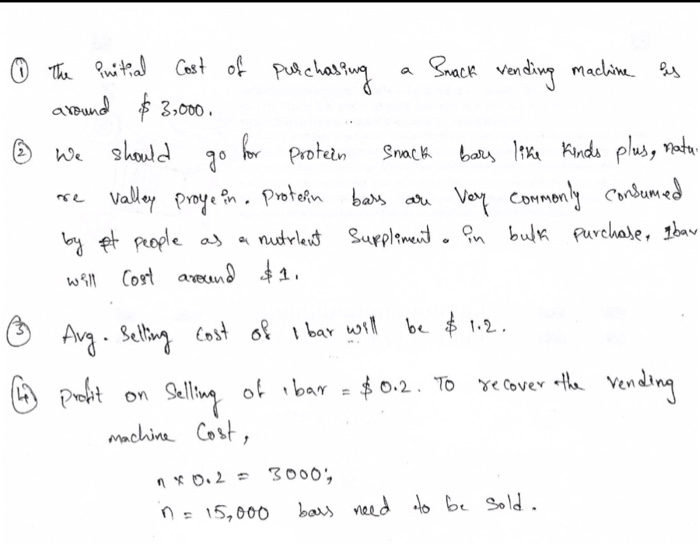 ① The initial Cost of purchasing a Snack vending machine is
around $ 3,000.
② We should go for protein snack bars like kinds plus, natu-
re valley proyein. Protein bars are Very commonly consumed
by people as a nutrient Supplement. in bulk purchase, 1bar
will Cost around $1.
③ Avg. Selling cost of 1 bar will be $ 1.2.
④ Profit on Selling of 1bar = $ 0.2. To recover the vending
machine Cost,
n × 0.2 = 3000;
n = 15,000 bars need to be sold.